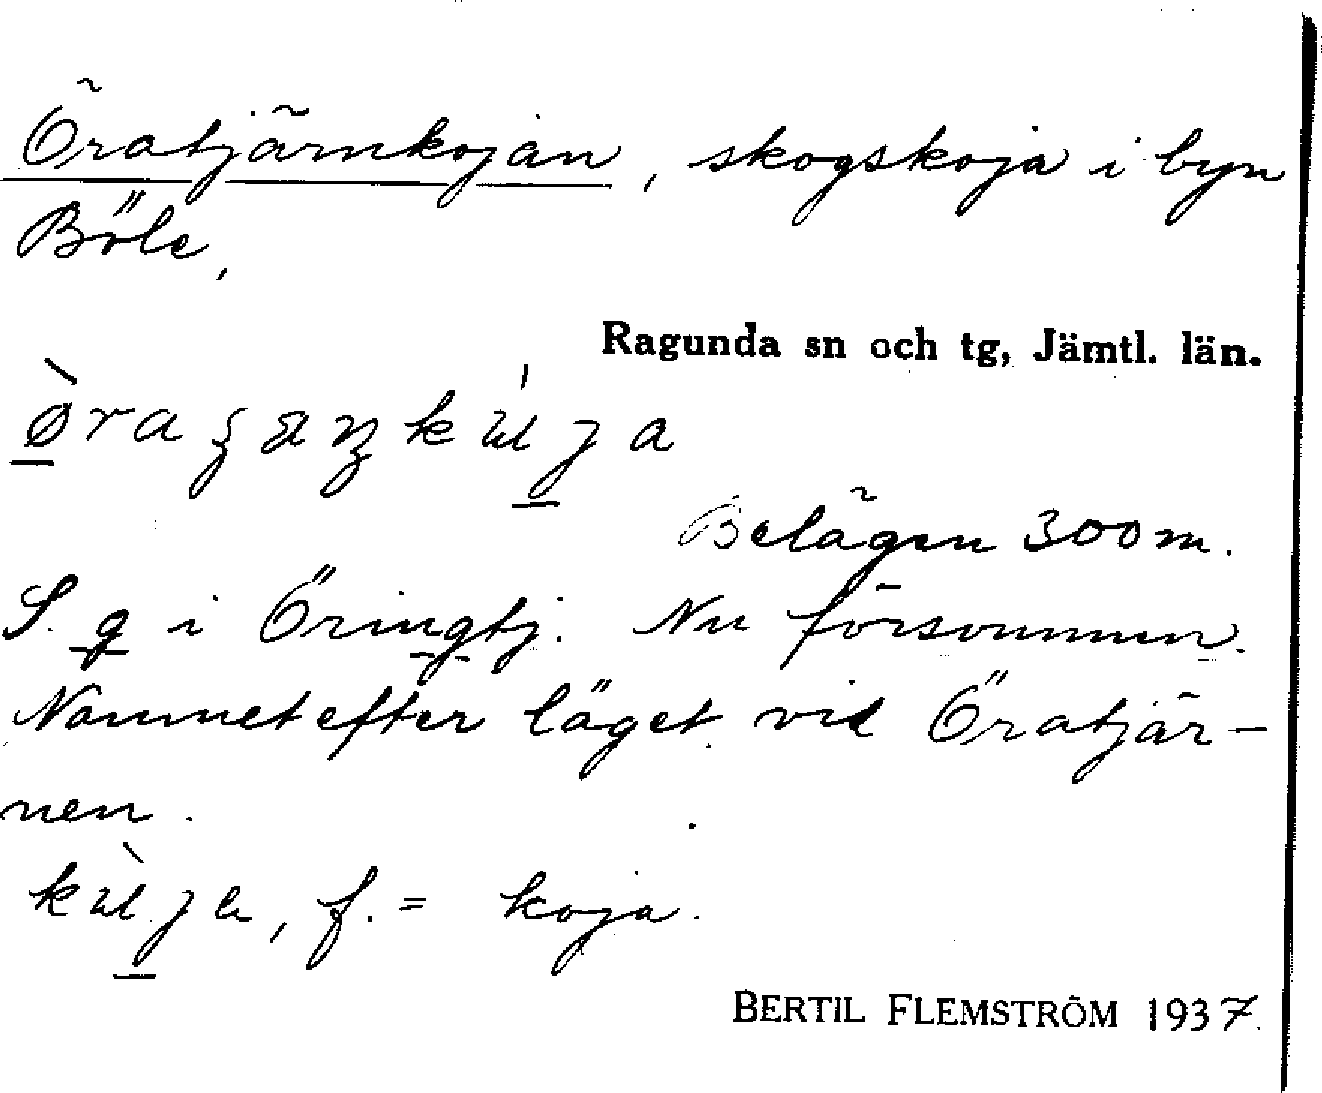 Öratjärnkojan, skogskoja i byn
Böle,
Ragunda sn och tg, Jämtl. län.
Belägen 300 m.
S. g i Öringtj. Nu försvunnen.
Namnet efter läget vid Öratjär-
nen.
f. = koja.
BERTIL FLEMSTRÖM 1937.